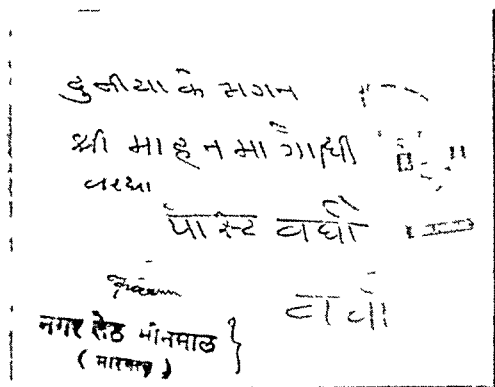 दुनीया के मगन
श्री माहनमा गाँधी
वरधा
पोस्ट वर्धा
वर्धा
नगर सेठ भीनमाल
(मारवाड़)